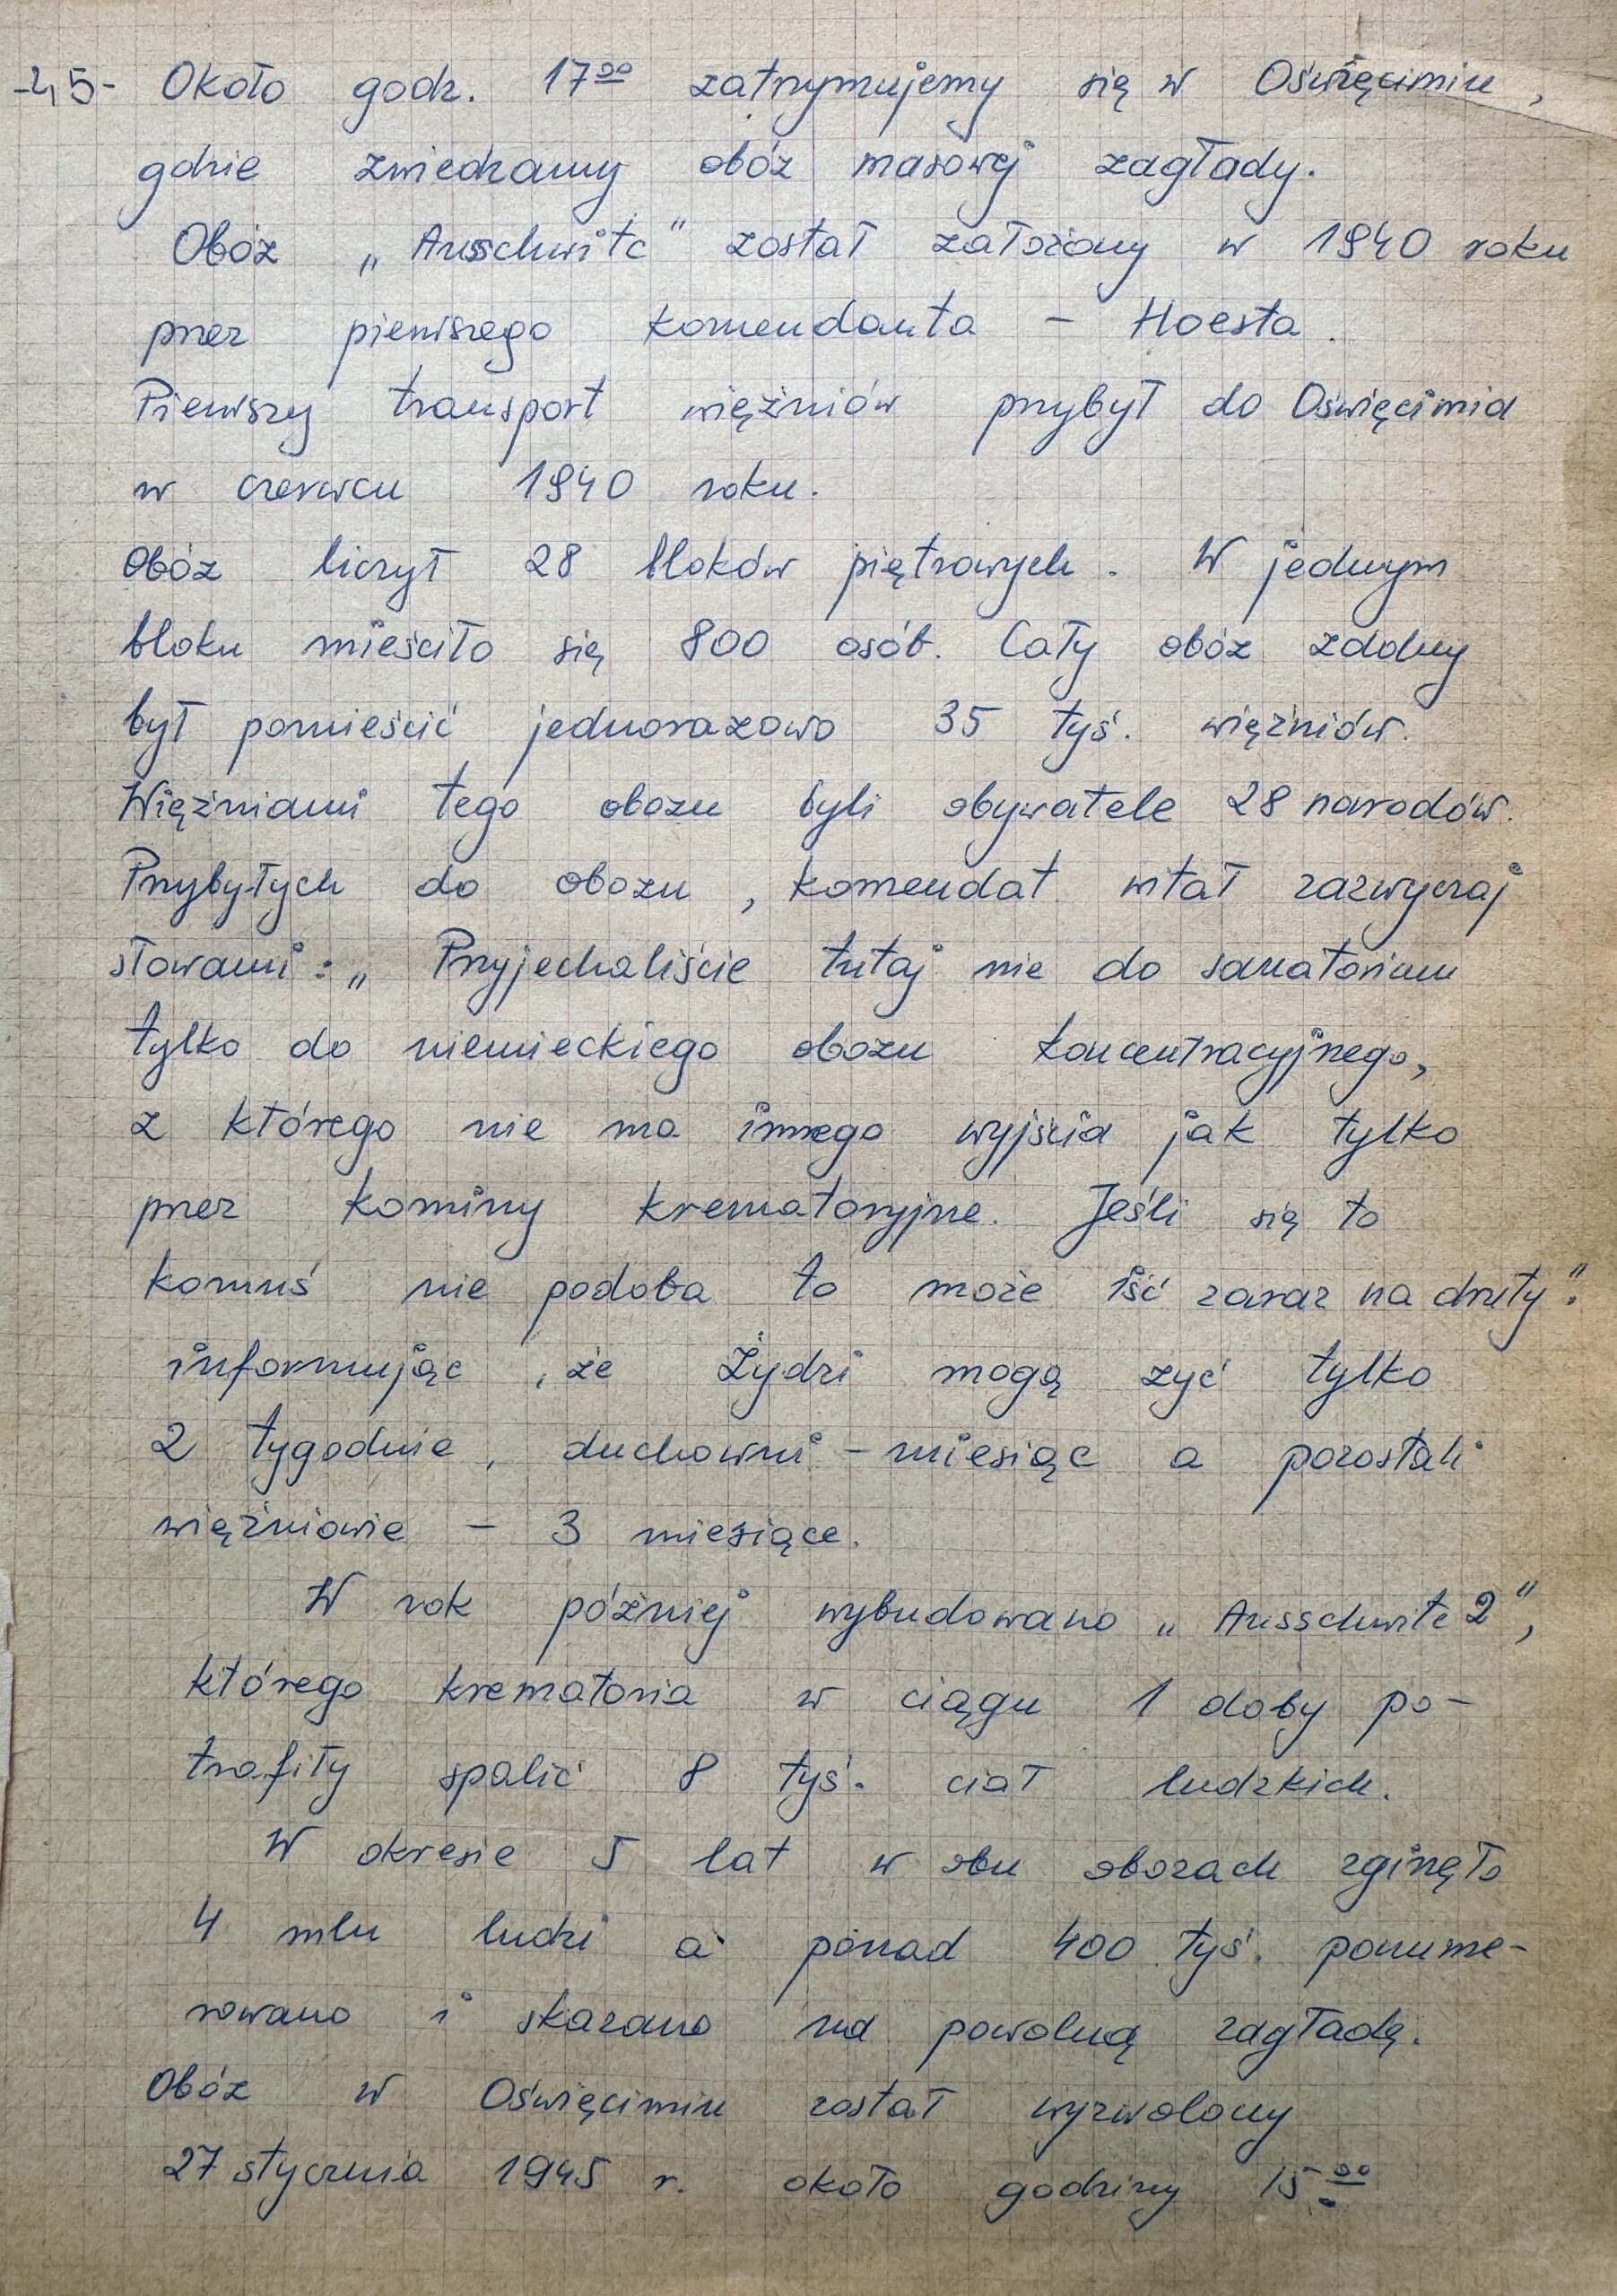 -45- Około godz. 17⁰⁰ zatrzymujemy się w Oświęcimiu,
gdzie zwiedzamy obóz masowej zagłady.
Obóz „Ausschwitc" został założony w 1940 roku
przez pierwszego komendanta - Hoesta.
Pierwszy transport więźniów przybył do Oświęcimia
w czerwcu 1940 roku.
Obóz liczył 28 bloków piętrowych. W jednym
bloku mieściło się 800 osób. Cały obóz zdolny
był pomieścić jednorazowo 35 tyś. więźniów.
Więźniami tego obozu byli obywatele 28 narodów.
Przybyłych do obozu, komendat witał zazwyczaj
słowami: „Przyjechaliście tutaj nie do sanatorium
tylko do niemieckiego obozu koncentracyjnego,
z którego nie ma innego wyjścia jak tylko
przez kominy krematoryjne. Jeśli się to
komuś nie podoba to może iść zaraz na druty".
informując, że Żydzi mogą zyć tylko
2 tygodnie, duchowni - miesiąc a pozostali
więźniowie - 3 miesiące.
W rok później wybudowano „Ausschwitc 2",
którego krematoria w ciągu 1 doby po-
trafiły spalić 8 tyś. ciał ludzkich.
W okresie 5 lat w obu obozach zginęło
4 mln ludzi a ponad 400 tyś. ponume-
rowano i skazano na powolną zagładę.
Obóz w Oświęcimiu został wyzwolony
27 stycznia 1945 r. około godziny 15⁰⁰